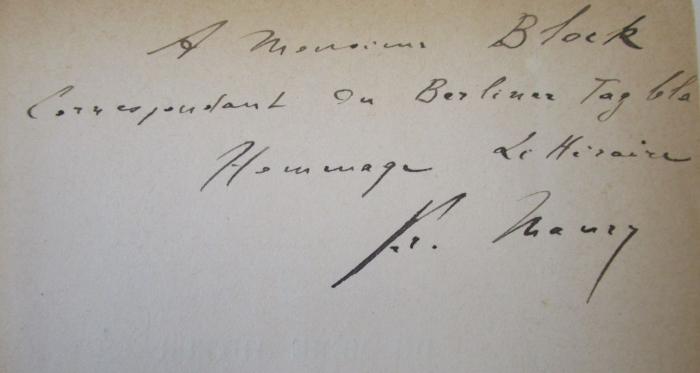 A Monsieur Block
Correspondant du Berliner Tagbla
Hommage Littéraire
Fr. Maury